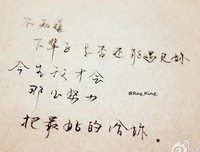 不知道
下辈子是否还能遇见妳
今生我才会
那么努力
@Roy_Xing_
把最好的给妳。